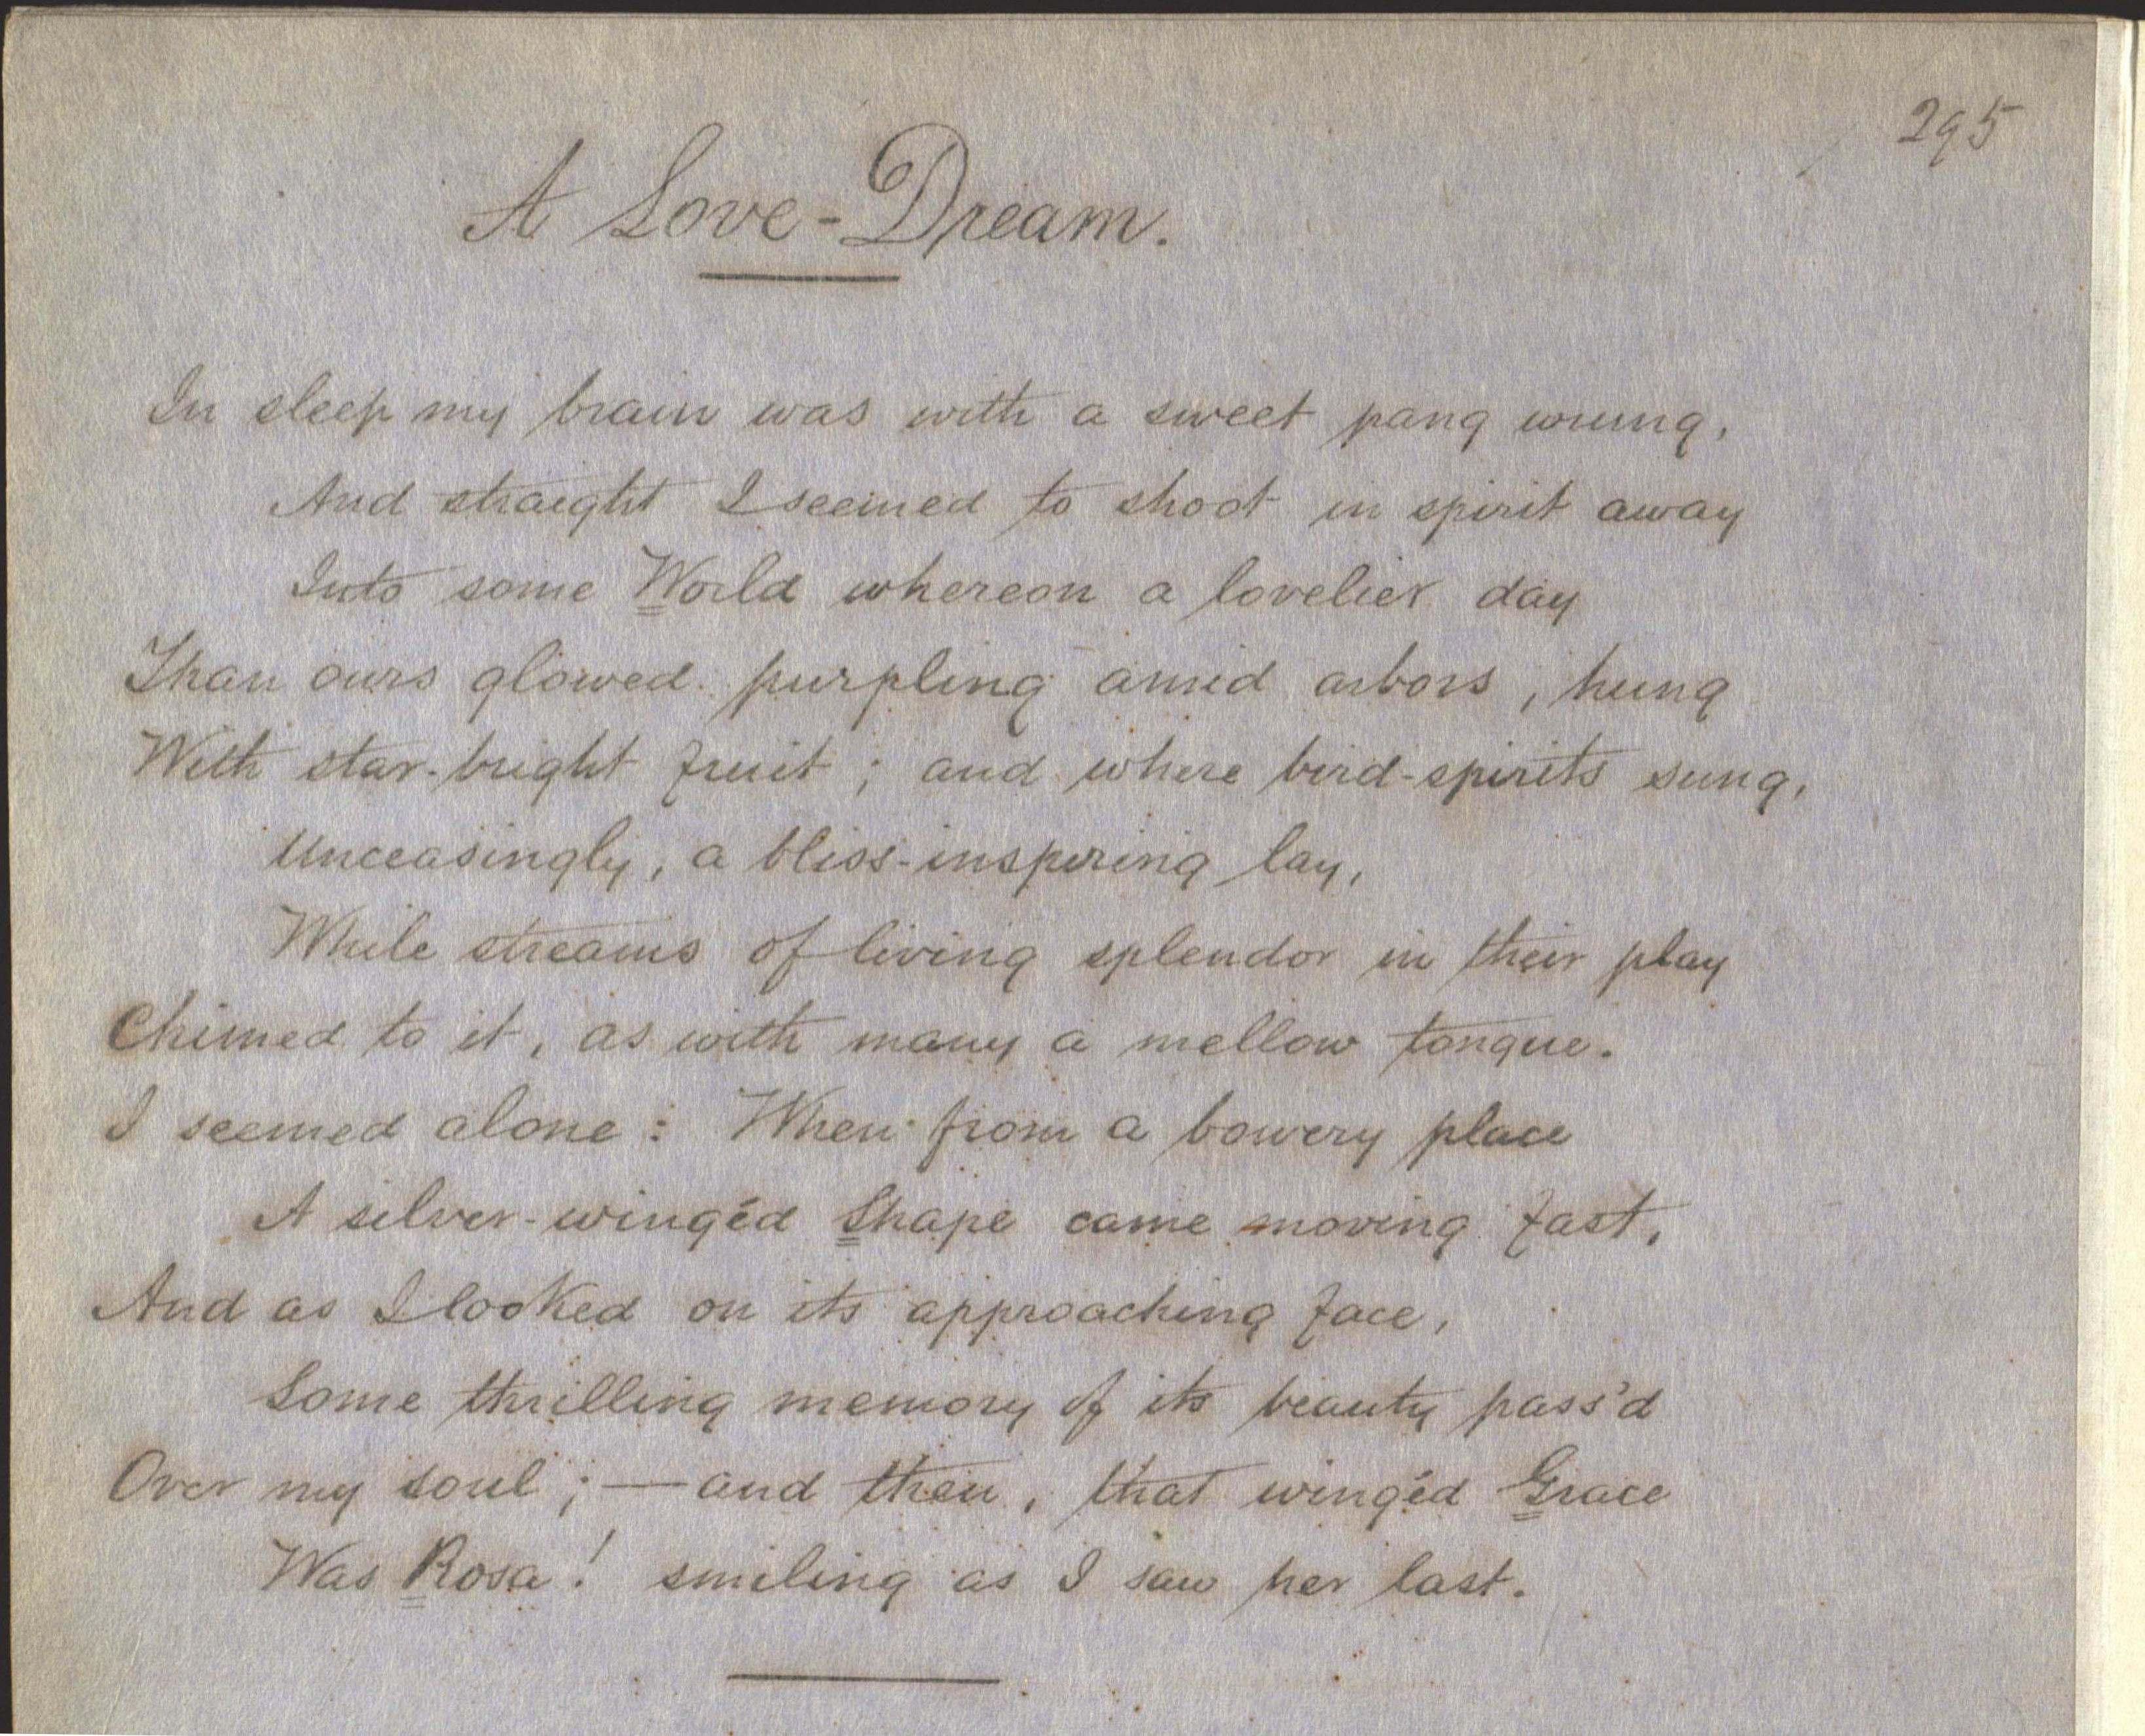 295
A Love-Dream.
In sleep my brain was with a sweet pang wrung,
And straight I seemed to shoot in spirit away
Into some World whereon a lovelier day
Than ours glowed purpling amid arbors, hung
With star-bright fruit; and where bird-spirits sung,
Unceasingly, a bliss-inspiring lay,
While streams of living splendor in their play
Chimed to it, as with many a mellow tongue.
I seemed alone: When from a bowery place
A silver-wingéd Shape came moving fast,
And as I looked on its approaching face,
Some thrilling memory of its beauty pass'd
Over my soul;—and then, that wingéd Grace
Was Rosa! smiling as I saw her last.